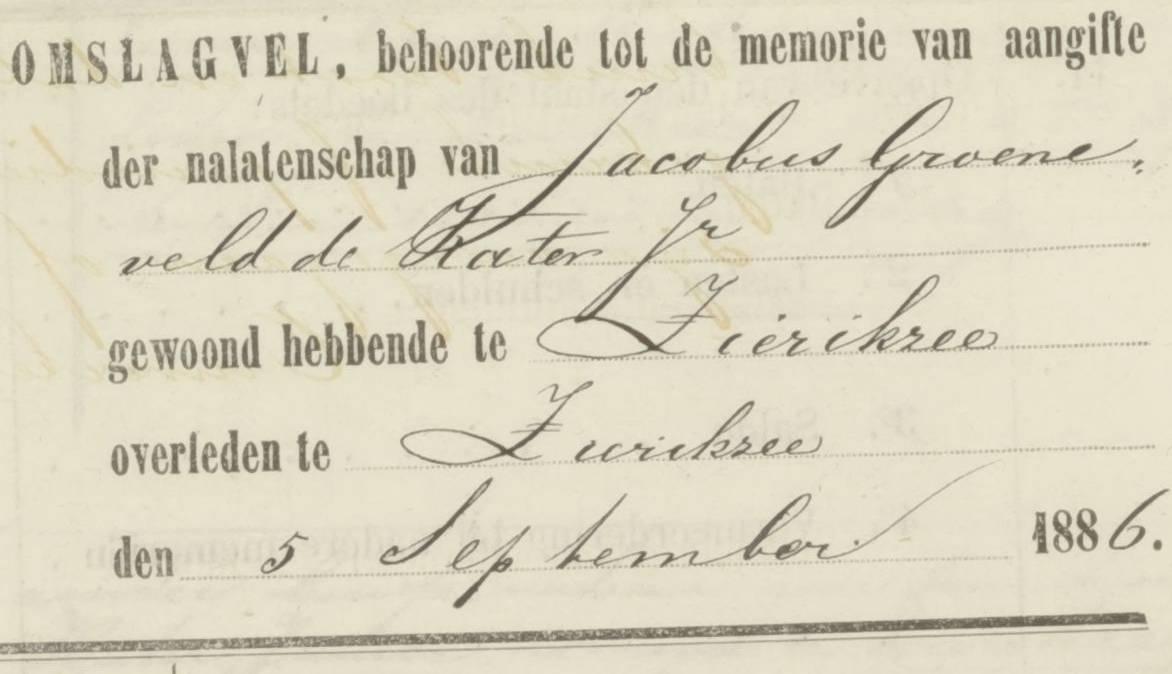 OMSLAGVEL, behoorende tot de memorie van aangifte
der nalatenschap van Jacobus Groene-
veld de Kater Jr
gewoond hebbende te Zierikzee
overleden te Zierikzee
den 5 September 1886.